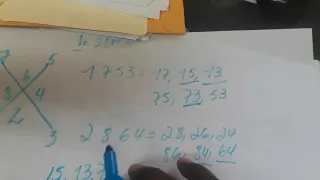 7 5
6
8 4
2
3
1753 = 17, 15, 13
75, 73, 53
2864 = 28, 26, 24
86, 84, 64
15, 13, 7